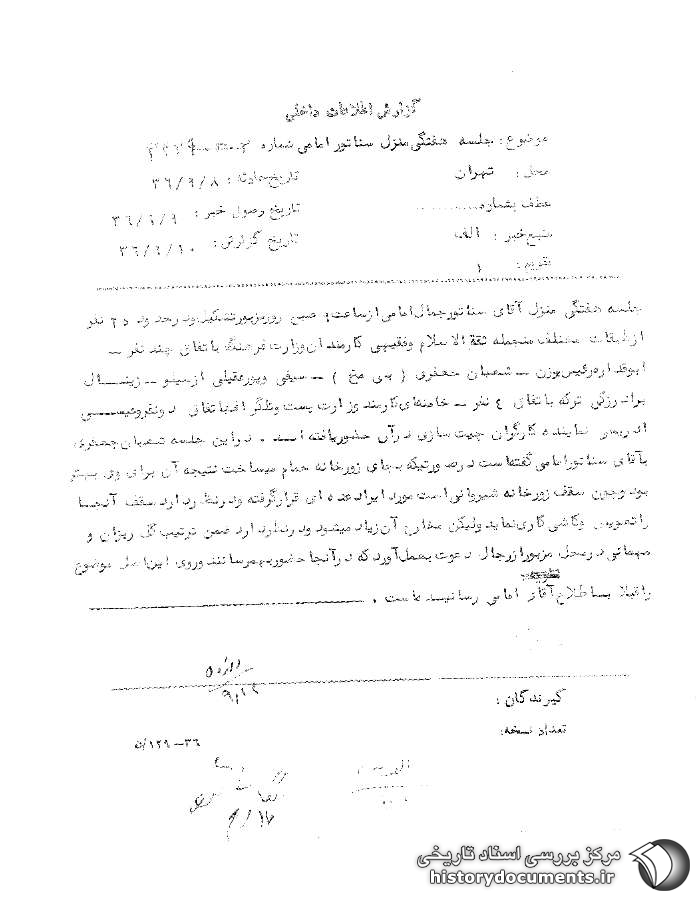 گزارش اطلاعات داخلی
موضوع: جلسه هفتگی منزل سناتور امامی شماره
محل: تهران
تاریخ حادثه: ۳۶/۹/۸
عطف بشماره..............
تاریخ وصول خبر: ۳۶/۹/۹
منبع خبر: الف
تاریخ گزارش: ۳۶/۹/۱۰
تقویم: ۱
جلسه هفتگی منزل آقای سناتور جمال امامی از ساعت صبح روز مزبور تشکیل و در حدود ۲۵ نفر
از طبقات مختلف منجمله ثقة الاسلام و فقیهی کارمندان وزارت فرهنگ با تفاق چند نفر –
ابوقداره رئیس وزن – شعبان جعفری (بی مخ) – سیفی و پورعقیلی از سینو – زینال
برادر زکی ترکه با تفاق ۴ نفر – خامنه‌ای کارمند وزارت پست و تلگراف با تفاق دو نفر و عیسی
نماینده کارگران چیت سازی در آن حضور یافته اند. در این جلسه شعبان جعفری
بآقای سناتور امامی گفته است در صورتیکه بجای زورخانه حمام میساخت نتیجه آن برای وی بهتر
بود و چون سقف زورخانه شیروانی است مورد ایراد عده ای قرار گرفته و در نظر دارد سقف آنجا
را تعویض و کاشی کاری نماید ولیکن مخارج آن زیاد میشود و در نظر دارد ضمن ترتیب گل ریزان و
مهمانی در محل مزبور از رجال دعوت بعمل آورد که در آنجا حضور بهمرسانند و روی این اصل موضوع
را قبلا باطلاع آقای امامی رسانیده است.
گیرندگان:
تعداد نسخه:
۹/۱۲
مرکز بررسی اسناد تاریخی
historydocuments.ir